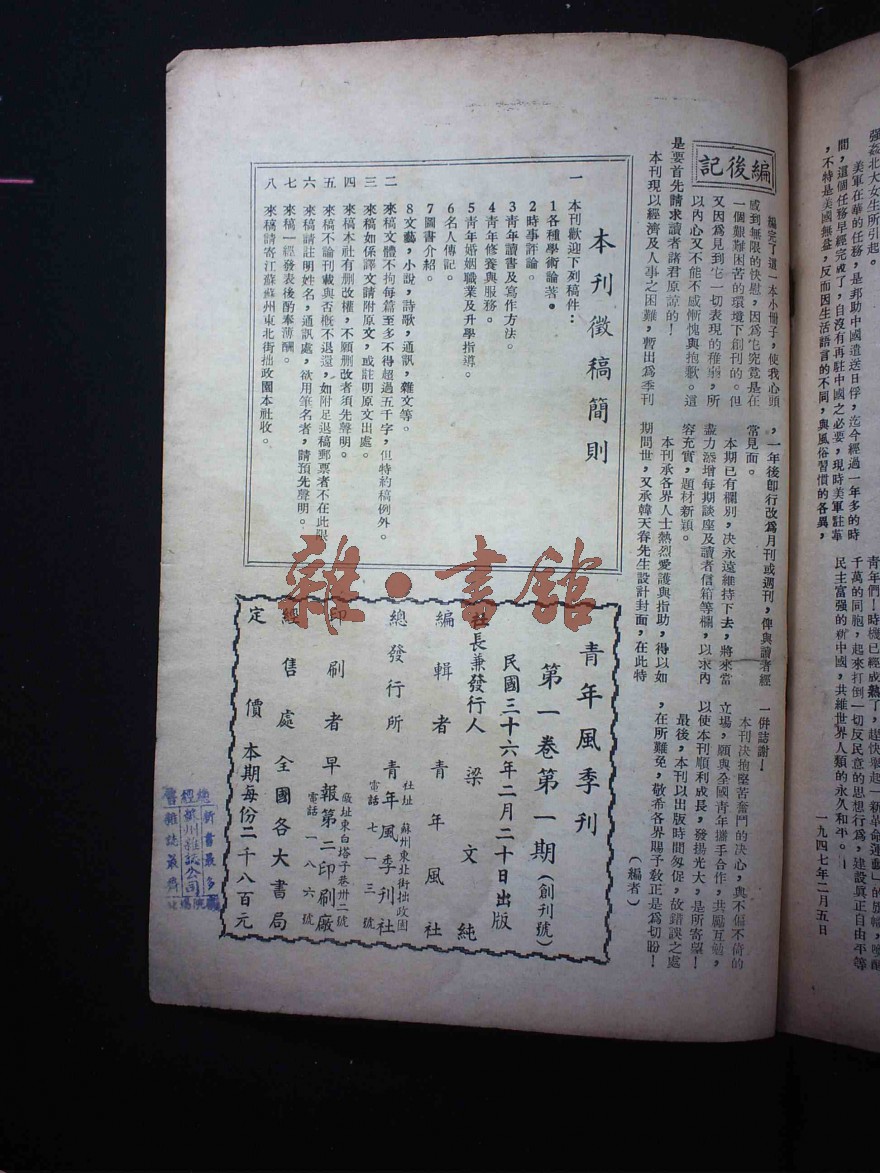 强姦北大女生所引起。
美軍在華的任務，是邦助中國遣送日俘，迄今經過一年多的時
間，這個任務早經完成了，自沒有再駐中國之必要，現時美軍駐華
，不特是美國無益，反而因生活語言的不同，與風俗習慣的各異，
青年們！時機已經成熟了，趕快舉起「新革命運動」的旗幟，喚醒
千萬的同胞，起來打倒一切反民意的思想行爲，建設眞正自由平等
民主富强的新中國，共維世界人類的永久和平。
一九四七年二月五日
編後記
編完了這一本小冊子，使我心頭
感到無限的快慰，因爲牠究竟是在
一個艱難困苦的環境下創刊的。但
又因爲見到牠一切表現的稚弱，所
以內心又不能不感慚愧與抱歉。這
是要首先請求讀者諸君原諒的！
本刊現以經濟及人事之困難，暫出爲季刊
，一年後卽行改爲月刊或週刊，俾與讀者經
常見面。
本期已有欄別，决永遠維持下去，將來當
盡力添增每期談座及讀者信箱等欄，以求內
容充實，題材新穎。
本刊承各界人士熱烈愛護與指助，得以如
期問世，又承韓天春先生設計封面，在此特
一併誌謝！
本刊决抱堅苦奮鬥的决心，與不偏不倚的
立場，願與全國青年攜手合作，共勵互勉，
以使本刊順利成長，發揚光大，是所寄望！
最後，本刊以出版時間匆促，故錯誤之處
，在所難免，敬希各界賜予敎正是爲切盼！
（編者）
本刊徵稿簡則
一 本刊歡迎下列稿件：
1各種學術論著。
2時事評論。
3青年讀書及寫作方法。
4青年修養與服務。
5青年婚姻職業及升學指導。
6名人傳記。
7圖書介紹。
8文藝，小說，詩歌，通訊，雜文等。
二 來稿文體不拘每篇至多不得超過五千字，但特約稿例外。
三 來稿如係譯文請附原文，或註明原文出處。
四 來稿本社有刪改權，不願刪改者須先聲明。
五 來稿不論刊載與否概不退還，如附足退稿郵票者不在此限
六 來稿請註明姓名，通訊處，欲用筆名者，請預先聲明。
七 來稿一經發表後酌奉薄酬。
八 來稿請寄江蘇蘇州東北街拙政園本社收。
青年風季刊
第一卷第一期（創刊號）
民國三十六年二月二十日出版
社長兼發行人 梁文純
編輯者 青年風社
總發行所 青年風季刊社
社址 蘇州東北街拙政園
電話 七一三號
印刷者 早報第二印刷廠
廠址東白塔子巷卅二號
電話 一八六號
經售處 全國各大書局
定價 本期每份二千八百元
雜·書館
新書最多
蘇州雜誌公司
雜誌最齊
總經售